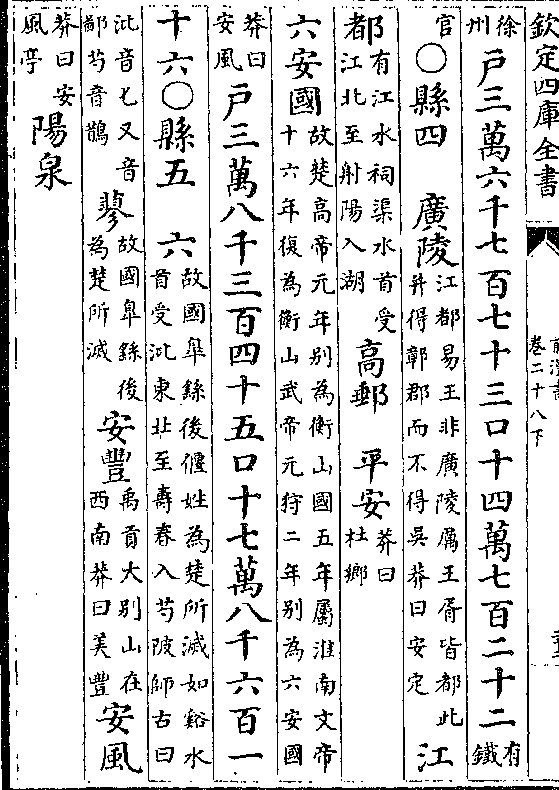 欽定四庫全書
前漢書
卷二十八下
徐州
戸三萬六千七百七十三口十四萬七百二十二
有鐵
官
○縣四
廣陵
江都易王非廣陵厲王胥皆都此
并得鄣郡而不得吳莽曰安定
江
都
有江水祠渠水首受
江北至射陽入湖
高郵
平安
莽曰
杜鄉
六安國
故楚高帝元年别為衡山國五年屬淮南文帝
十六年復為衡山武帝元狩二年别為六安國
莽曰
安風
戸三萬八千三百四十五口十七萬八千六百一
十六○縣五
六
故國臯繇後偃姓為楚所滅如谿水
首受沘東北至壽春入芍陂師古曰
沘音匕又音
鄙芍音鵲
蓼
故國臯繇後
為楚所滅
安豐
禹貢大别山在
西南莽曰美豐
安風
莽曰安
風亭
陽泉